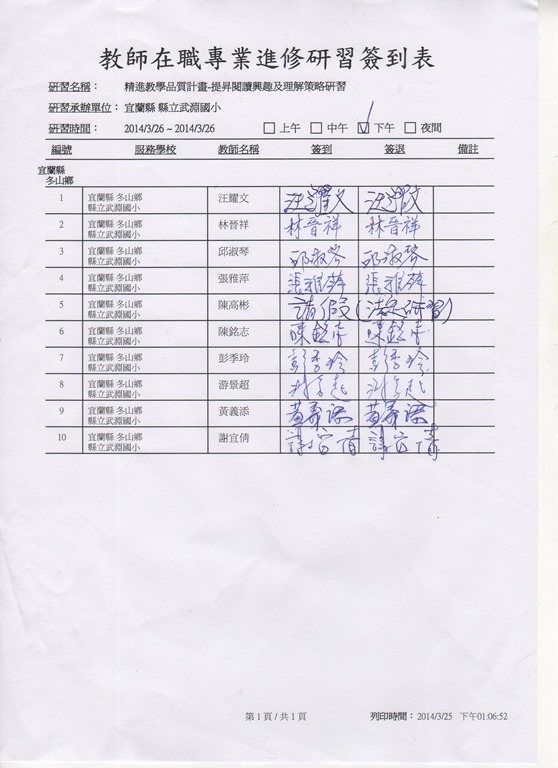 教師在職專業進修研習簽到表
研習名稱： 精進教學品質計畫-提昇閱讀興趣及理解策略研習
研習承辦單位： 宜蘭縣 縣立武淵國小
研習時間： 2014/3/26 ~ 2014/3/26 上午 中午 下午 夜間
編號 服務學校 教師名稱 簽到 簽退 備註
宜蘭縣
冬山鄉
1 宜蘭縣 冬山鄉 汪耀文 汪耀文
縣立武淵國小
2 宜蘭縣 冬山鄉 林晉祥 林晉祥 林晉祥
縣立武淵國小
3 宜蘭縣 冬山鄉 邱淑琴 邱淑琴 邱淑琴
縣立武淵國小
4 宜蘭縣 冬山鄉 張雅萍 張雅萍 張雅萍
縣立武淵國小
5 宜蘭縣 冬山鄉 陳高彬 請假
縣立武淵國小
6 宜蘭縣 冬山鄉 陳銘志 陳銘志 陳銘志
縣立武淵國小
7 宜蘭縣 冬山鄉 彭季玲 彭季玲 彭季玲
縣立武淵國小
8 宜蘭縣 冬山鄉 游景超 游景超 游景超
縣立武淵國小
9 宜蘭縣 冬山鄉 黃義添 黃義添 黃義添
縣立武淵國小
10 宜蘭縣 冬山鄉 謝宜倩 謝宜倩 謝宜倩
縣立武淵國小
第 1 頁 / 共 1 頁 列印時間： 2014/3/25 下午01:06:52